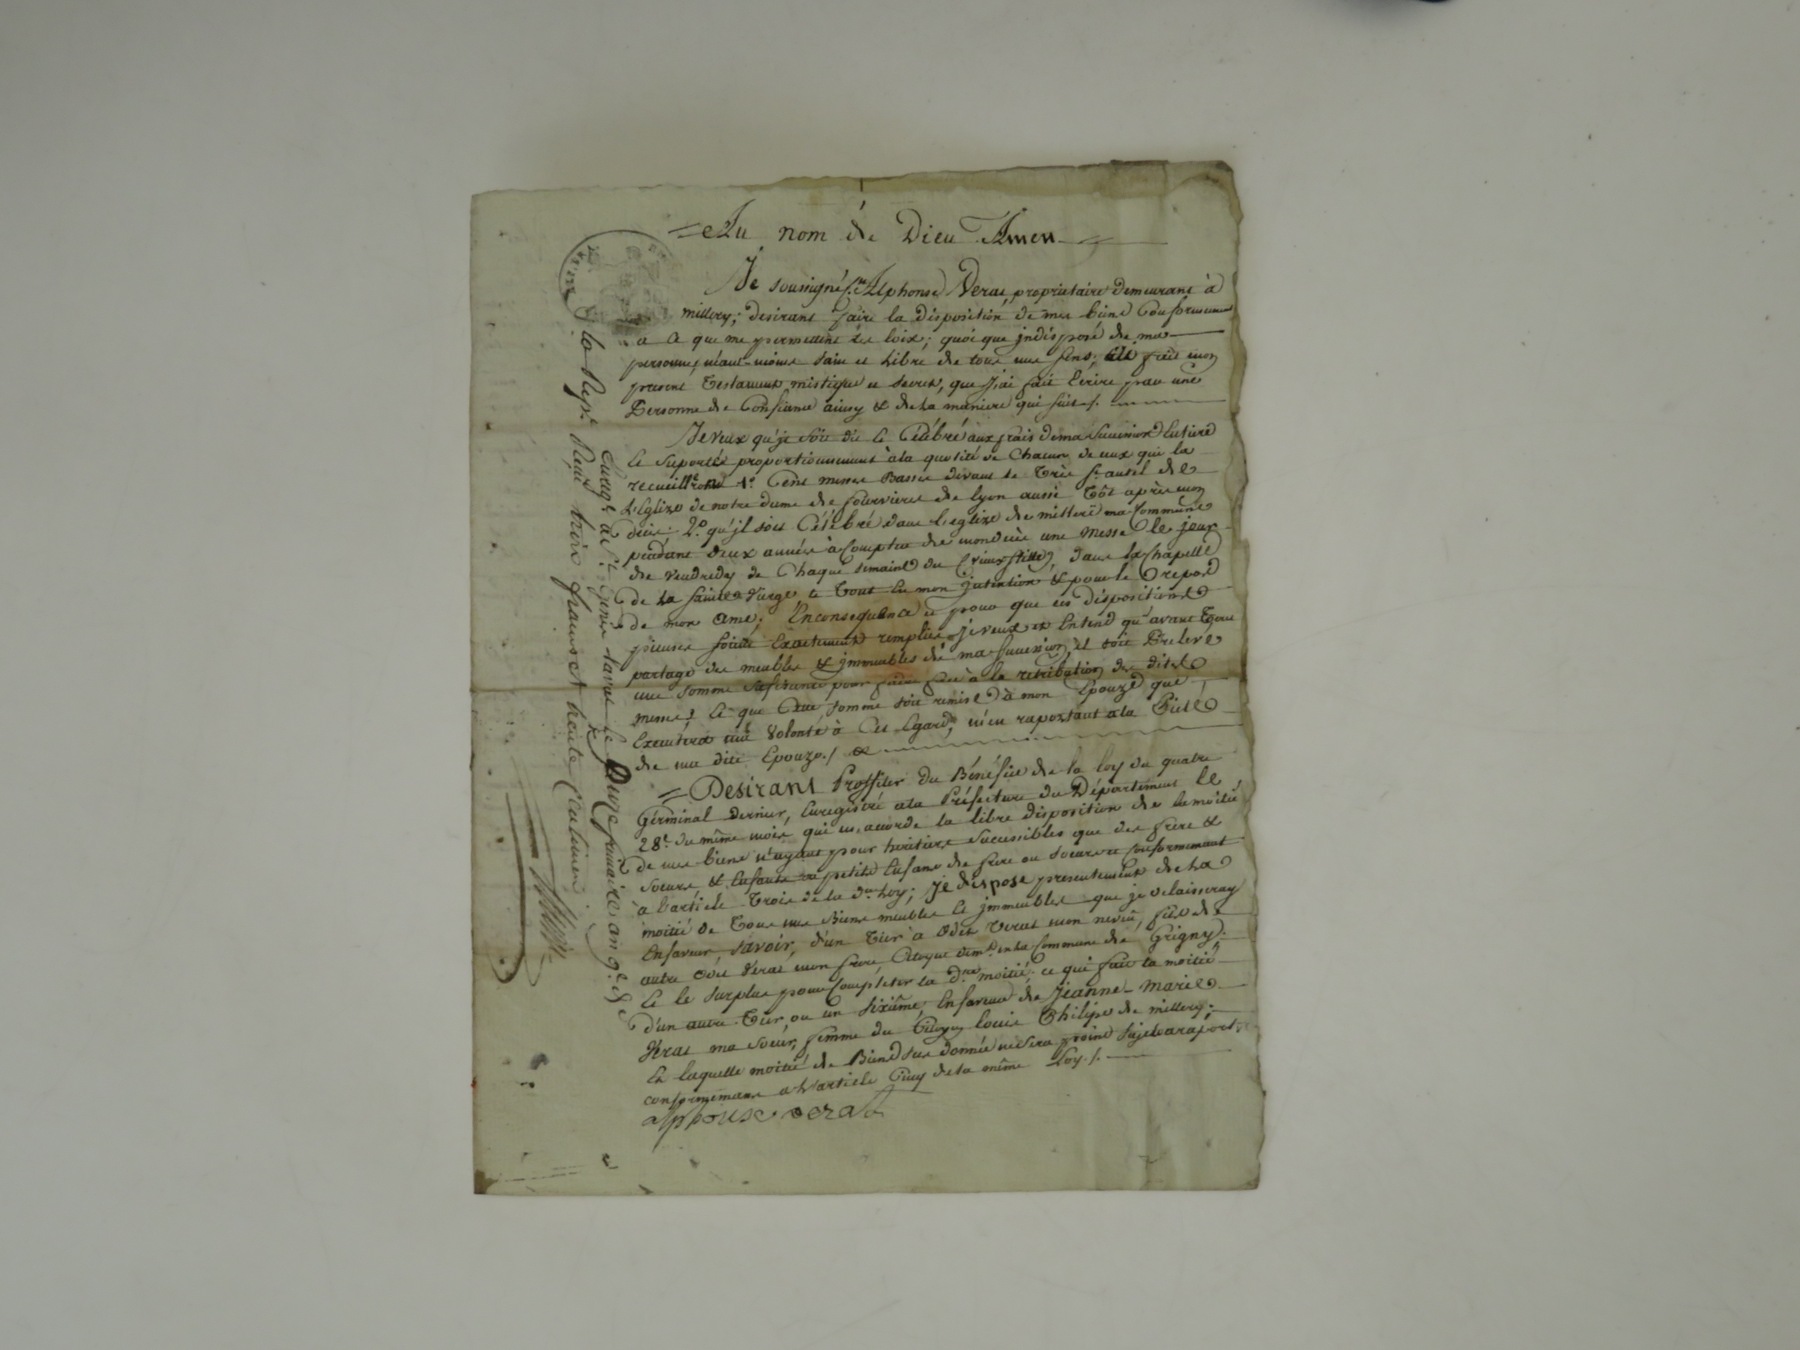 Au nom de Dieu Amen
Je soussigné Alphonse Verat, propriétaire demeurant à
millery; desirant faire la disposition de mes biens Conformement
a ce que me permettent les loix; quoi que jndisposé de ma
personne, néant-moins sain et libre de tous mes sens; ai fait mon
present testament mistique et secret, que J'ai fait Ecrire par une
Personne de Confiance ainsy & de la maniere qui suit /.
Je veux qu'jl soit dit et Célébré aux frais de ma succession Entiere
et suportés proportionnement à la quotité de Chacun de ceux qui la
recueilleront 1º Cent messes Basses devant le Très St autel de
L'Eglize de notre dame de fourviere de lyon aussi tôt après mon
décès: 2º qu'jl soit Célébré dans l'eglize de milleri ma Commune
pendant deux années à Compter de mon décès une Messe le jour
de vendredy de Chaque semaine du (vieux stille), dans la Chapelle
de la sainte Vierge, le tout en mon jntention & pour le repos
de mon ame; En consequence et pour que ces dispositions
pieuses soient Exactement remplies, je veux et Entend qu'avant tout
partage des meubles & jmmeubles de ma succession, il soit Prelevé
une somme sufisante pour faire face à la retribution des dites
messes; Et que Cette somme soit remise à mon Epouze qui
Executera ma Volonté à Cet Egard, m'en raportant a la Piété
de ma dite Epouze /.
Desirant Proffiter du Bénéfice de la loy du quatre
Germinal dernier, Enregistré a la Préfecture du Département le
28e du même mois qui m'acorde la libre disposition de la moitié
de mes biens n'ayant pour heritiers sucessibles que des frere &
soeurs, & Enfants ou petits Enfans de frere ou soeurs et conformement
a l'article trois de la de loy; je dispose presentement de la
moitié de tous mes Biens meubles et jmmeubles que je delaisseray
En faveur, savoir, d'un tier à odet Verat mon neveu, fils de
autre odet Verat mon frere, Citoyen demt en la Commune de Grigny.
Et le surplus pour Completer la de moitié; ce qui fait la moitié
d'un autre tier, ou un sixiême, En faveur de Jeanne-Marie
Verat ma soeur, femme du Citoyen louis Philipe de millery;
Et laquelle moitié de Biens sus donnée ne sera point sujete a raport,
conformement a l'article Cinq de la même loy /.
alphonse verat
Enregé à St Genis laval le Onze frimaire an 9e
Reçu trois francs trente Centimes